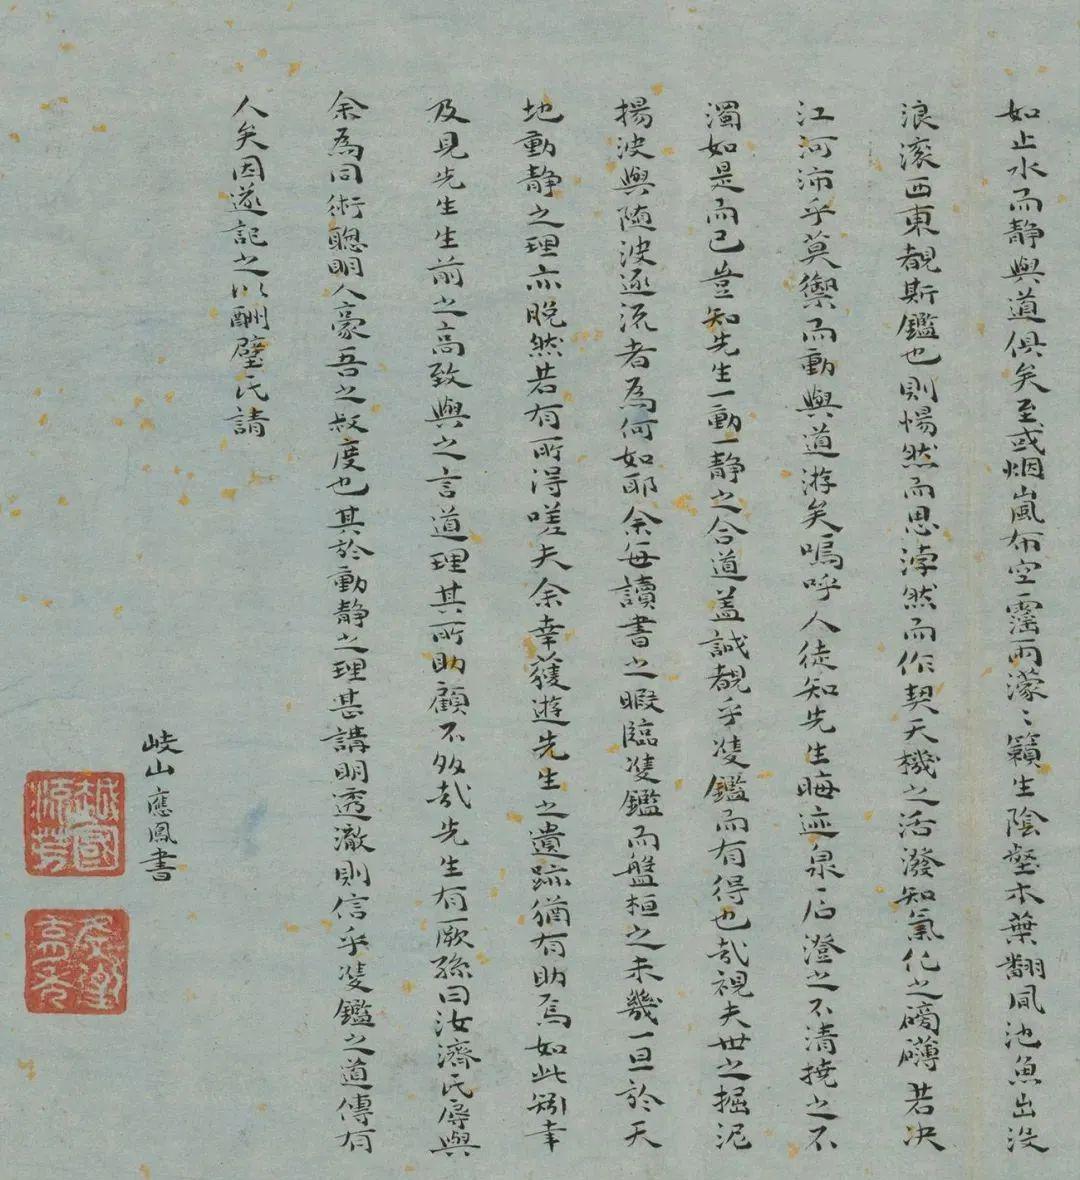 如止水而静與道俱矣至或烟嵐布空霪雨濛〻籟生陰壑木葉翻風池魚出没
浪滚西東覩斯鑑也則惕然而思浡然而作契天機之活潑知氣化之磅礴若决
江河沛乎莫禦而動與道游矣嗚呼人徒知先生晦迹泉石澄之不清撓之不
濁如是而已豈知先生一動一静之合道盖誠覩乎雙鑑而有得也哉視夫世之掘泥
揚波與随波逐流者為何如耶余每讀書之暇臨雙鑑而盤桓之未幾一旦於天
地動静之理亦晚然若有所得嗟夫余幸獲遊先生之遺跡猶有助焉如此矧幸
及見先生生前之高致與之言道理其所助顧不多哉先生有厥孫曰汝濟氏辱與
余為同術聰明人豪吾之叔度也其於動静之理甚講明透澈則信乎雙鑑之道傳有
人矣因遂記之以酬璧氏請
岐山應鳳書